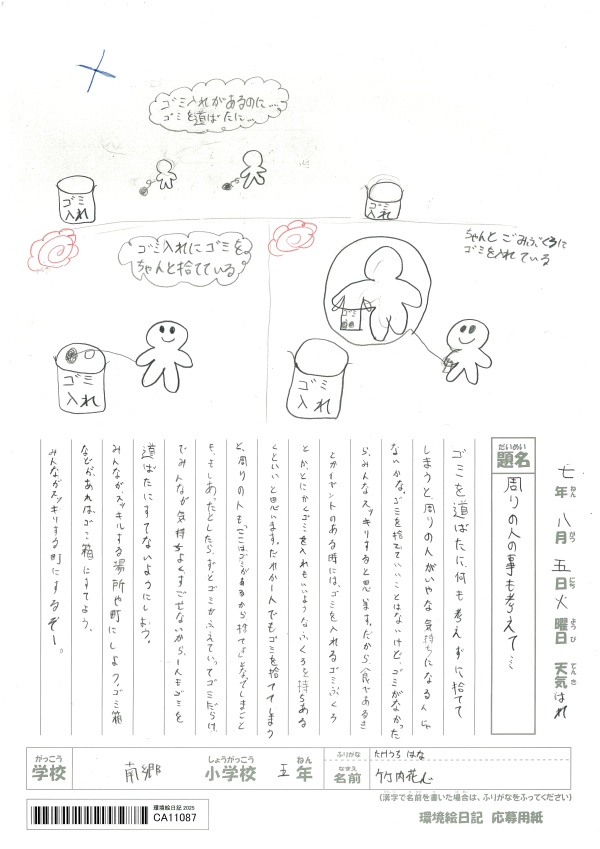 ゴミ入れがあるのに…
ゴミを道ばたに…
ゴミ
入れ
ゴミ
入れ
ゴミ入れにゴミを
ちゃんと捨てている
ちゃんとごみぶくろに
ゴミを入れている
ゴミ
入れ
ゴミ
ゴミ
入れ
七年八月五日火曜日 天気はれ
ねん がつ にち ようび てんき
だいめい
題名
周りの人の事も考えて…
ゴミを道ばたに、何も考えずに捨てて
しまうと、周りの人がいやな気持ちになる人じゃ
ないかな。ゴミを捨てていいことはないけど、ゴミがなかった
ら、みんなスッキリすると思います。だから、食べあるき
とかイベントのある時には、ゴミを入れるゴミぶくろ
とか、とにかくゴミを入れれるようなふくろを持ちある
くといいと思います。だれか一人でもゴミを捨ててしまう
と、周りの人も「ここはゴミがあるから捨てよ」となってしまうこと
も、もしあったとしたら、ずっとゴミがふえていってゴミだらけ
でみんなが気持ちよくすごせないから、一人もゴミを
道ばたにすてないようにしよう。
みんながスッキリする場所や町にしよう。ゴミ箱
などが、あれば、ゴミ箱にすてよう。
みんながスッキリする町にするぞー。
がっこう
学校
南郷
しょうがっこう
小学校
五
ねん
年
ふりがな
たけうち はな
なまえ
名前
竹内花心
(漢字で名前を書いた場合は、ふりがなをふってください)
環境絵日記 2025
CA11087
環境絵日記 応募用紙